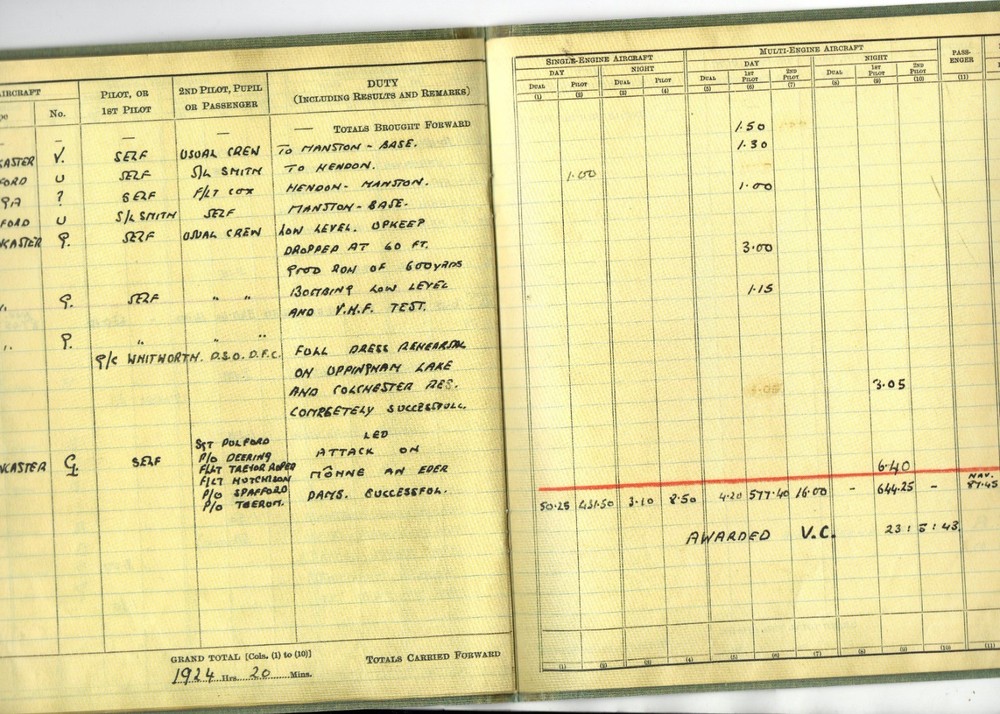 AIRCRAFT
PILOT, OR 1ST PILOT
2ND PILOT, PUPIL OR PASSENGER
DUTY (INCLUDING RESULTS AND REMARKS)
No.
— — — — TOTALS BROUGHT FORWARD
CASTER V. SELF USUAL CREW TO MANSTON - BASE.
FORD U SELF S/L SMITH TO HENDON.
? SELF F/LT COX HENDON - MANSTON.
FORD U S/L SMITH SELF MANSTON - BASE.
NCASTER G. SELF USUAL CREW LOW LEVEL. UPKEEP
DROPPED AT 60 FT.
GOOD RUN OF 600 YRDS
,, G. SELF " " BOMBING LOW LEVEL
AND V.H.F. TEST.
,, G. " " "
G/C WHITWORTH. D.S.O. D.F.C. FULL DRESS REHEARSAL
ON UPPINGHAM LAKE
AND COLCHESTER RES.
COMPLETELY SUCCESSFULL.
LED
SGT PULFORD
P/O DEERING ATTACK ON
NCASTER G. SELF F/LT TREVOR ROPER
F/LT HUTCHISON MÖHNE AN EDER
P/O SPAFFORD DAMS. SUCCESSFUL.
P/O TAERUM.
GRAND TOTAL [Cols. (1) to (10)] TOTALS CARRIED FORWARD
1924 Hrs. 20 Mins.
SINGLE-ENGINE AIRCRAFT MULTI-ENGINE AIRCRAFT PASS-ENGER
DAY NIGHT DAY NIGHT
DUAL PILOT DUAL PILOT DUAL 1ST PILOT 2ND PILOT DUAL 1ST PILOT 2ND PILOT
(1) (2) (3) (4) (5) (6) (7) (8) (9) (10) (11)
1.50
1.30
1.00
1.00
3.00
1.15
3.05 3.05
6.40
NAV.
50.25 431.50 3.10 8.50 4.20 577.40 16.00 - 644.25 - 87.45
AWARDED V.C. 23:5:43.
(1) (2) (3) (4) (5) (6) (7) (8) (9) (10) (11)